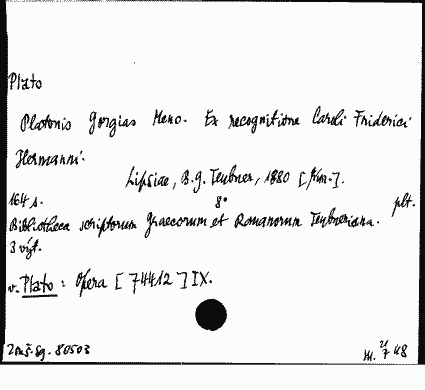 Plato
Platonis Gorgias Meno. Ex recognitione Caroli Friderici
Hermanni.
Lipsiae, B.G. Teubner, 1880
164 s. 8° plt.
Bibliotheca scriptorum Graecorum et Romanorum Teubneriana.
3 výt.
v. Plato: Opera [74412] IX.
80503
48